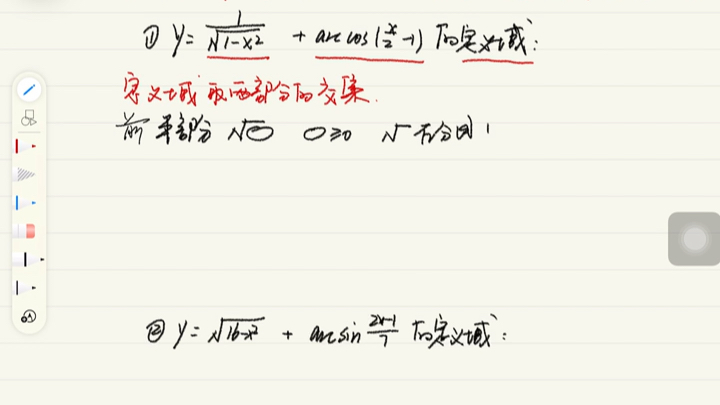 ① y = 1/√(1-x²) + arccos(x/2 - 1) 的定义域:
定义域 取两部分的交集.
前半部分 √○ ○≥0 √ 在分母
② y = √(16-x²) + arcsin (2x-1)/7 的定义域: